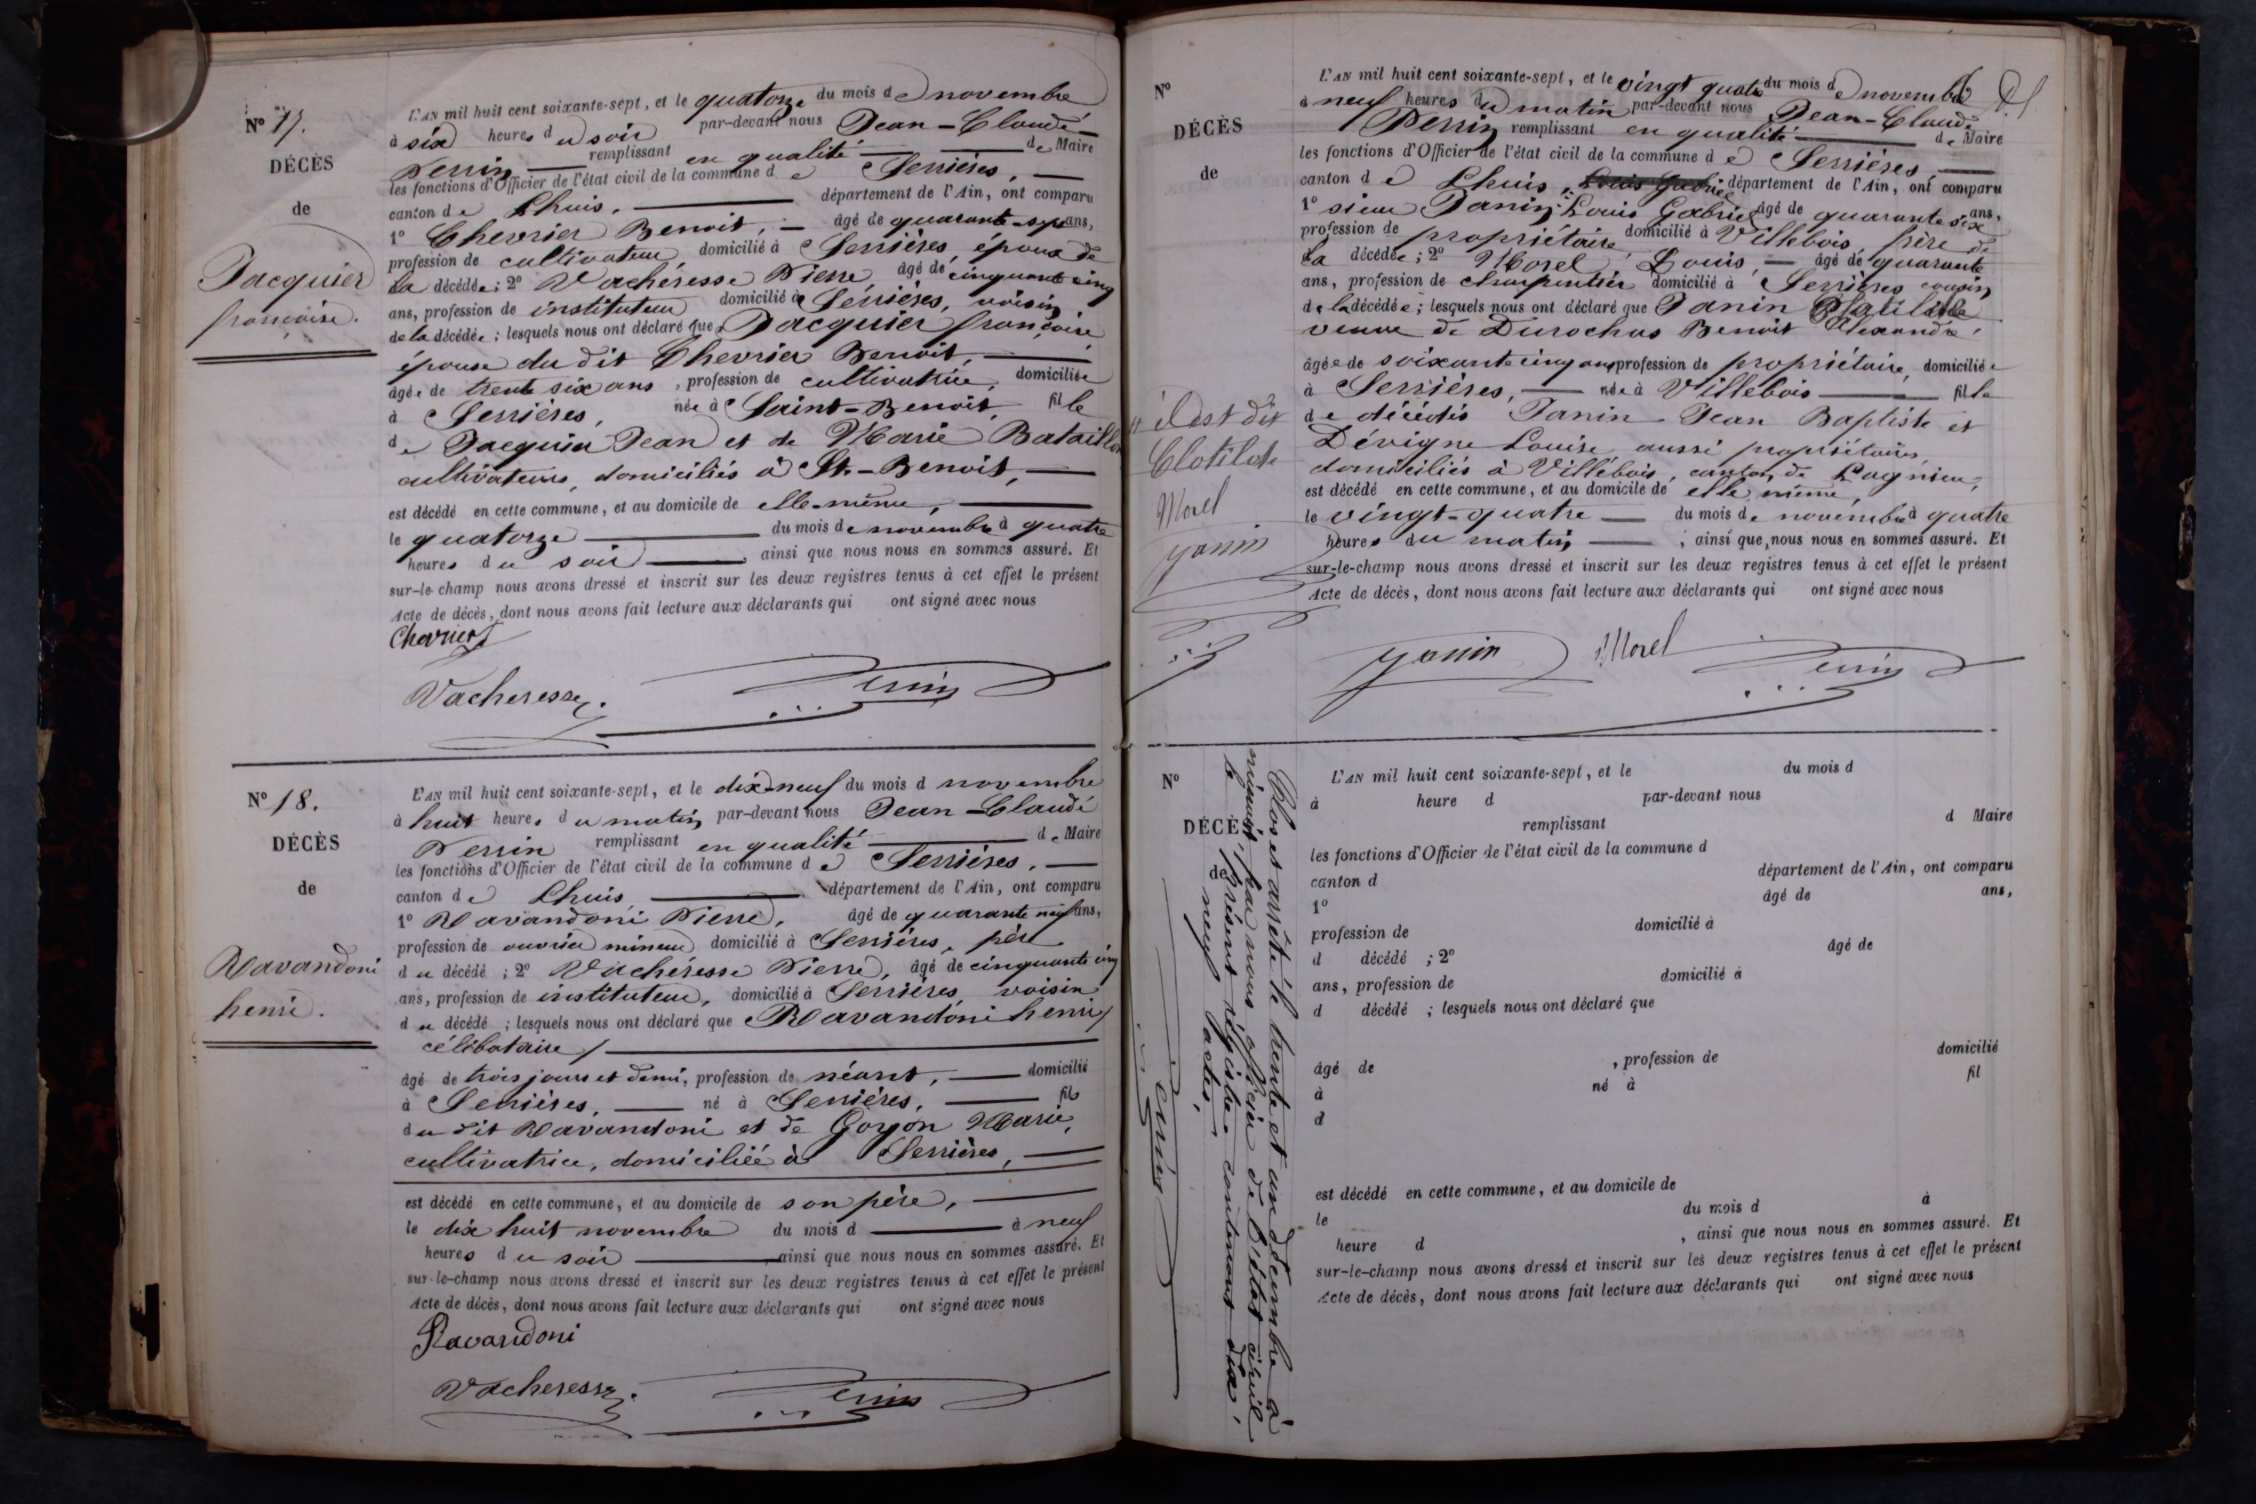 N° 17.
DÉCÈS
de
Jacquier
françoise.
L'AN mil huit cent soixante-sept, et le quatorze du mois de novembre
à six heures du soir par-devant nous Jean-Claude
Perrin remplissant en qualité de Maire
les fonctions d'Officier de l'état civil de la commune de Serrières,
canton de Lhuis, département de l'Ain, ont comparu
1° Chevrier Benoit, âgé de quarante-sept ans,
profession de cultivateur domicilié à Serrières, époux de
la décédée; 2° Vachéresse Pierre, âgé de cinquante cinq
ans, profession de instituteur domicilié à Serrières, voisin
de la décédée; lesquels nous ont déclaré que Jacquier françoise
épouse du dit Chevrier Benoit,
âgée de trente six ans, profession de cultivatrice, domiciliée
à Serrières, née à Saint-Benoit, fille
de Jacquier Jean et de Marie Bataillon
cultivateurs, domiciliés à St-Benoit,
est décédé en cette commune, et au domicile de elle-même,
le quatorze du mois de novembre à quatre
heures du soir, ainsi que nous nous en sommes assuré. Et
sur-le-champ nous avons dressé et inscrit sur les deux registres tenus à cet effet le présent
Acte de décès, dont nous avons fait lecture aux déclarants qui ont signé avec nous
Chevrier
Vacheresse. Perrin
N° 18.
DÉCÈS
de
Ravandoni
henri.
L'AN mil huit cent soixante-sept, et le dix-neuf du mois d novembre
à huit heures du matin, par-devant nous Jean-Claude
Perrin remplissant en qualité de Maire
les fonctions d'Officier de l'état civil de la commune de Serrières,
canton de Lhuis département de l'Ain, ont comparu
1° Ravandoni Pierre, âgé de quarante neuf ans,
profession de ouvrier mineur domicilié à Serrières, père
du décédé; 2° Vachéresse Pierre, âgé de cinquante cinq
ans, profession de instituteur, domicilié à Serrières, voisin
du décédé; lesquels nous ont déclaré que Ravandoni henri
célibataire
âgé de trois jours et demi, profession de néant, domicilié
à Serrières, né à Serrières, fils
du dit Ravandoni et de Goyon Marie,
cultivatrice, domiciliée à Serrières,
est décédé en cette commune, et au domicile de son père,
le dix huit novembre du mois d à neuf
heures du soir, ainsi que nous nous en sommes assuré. Et
sur-le-champ nous avons dressé et inscrit sur les deux registres tenus à cet effet le présent
Acte de décès, dont nous avons fait lecture aux déclarants qui ont signé avec nous
Ravandoni
Vacheresse. Perrin
N°
DÉCÈS
de
il est dit
Clotilde
Morel
Janin
L'AN mil huit cent soixante-sept, et le vingt quatre du mois de novembre
à neuf heures du matin par-devant nous Jean-Claude
Perrin remplissant en qualité de Maire
les fonctions d'Officier de l'état civil de la commune de Serrières,
canton de Lhuis, Louis Gabriel département de l'Ain, ont comparu
1° sieur Janin, Louis Gabriel âgé de quarante six ans,
profession de propriétaire domicilié à Villebois, frère de
la décédée; 2° Morel Louis, âgé de quarante
ans, profession de charpentier domicilié à Serrières cousin
de la décédée; lesquels nous ont déclaré que Janin
veuve de Durochas Benoit Alexandre,
âgée de soixante cinq ans, profession de propriétaire, domiciliée
à Serrières, née à Villebois fille
de décédés Janin Jean Baptiste et
Dévigne Louise, aussi propriétaires,
domiciliés à Villebois, canton de Lagnieu,
est décédé en cette commune, et au domicile de elle même,
le vingt-quatre du mois de novembre à quatre
heures du matin; ainsi que nous nous en sommes assuré. Et
sur-le-champ nous avons dressé et inscrit sur les deux registres tenus à cet effet le présent
Acte de décès, dont nous avons fait lecture aux déclarants qui ont signé avec nous
Janin Morel Perrin
N°
DÉCÈS
de
Clos et arrêté le trente et un décembre à
minuit, par nous officier de l'état civil
le présent régistre contenant dix
neuf actes,
Perrin
L'AN mil huit cent soixante-sept, et le du mois d
à heure d par-devant nous
remplissant d Maire
les fonctions d'Officier de l'état civil de la commune d
canton d département de l'Ain, ont comparu
1° âgé de ans,
profession de domicilié à
d décédé; 2° âgé de
ans, profession de domicilié à
d décédé; lesquels nous ont déclaré que
âgé de, profession de domicilié
à né à fil
d
est décédé en cette commune, et au domicile de
le du mois d à
heure d, ainsi que nous nous en sommes assuré. Et
sur-le-champ nous avons dressé et inscrit sur les deux registres tenus à cet effet le présent
Acte de décès, dont nous avons fait lecture aux déclarants qui ont signé avec nous